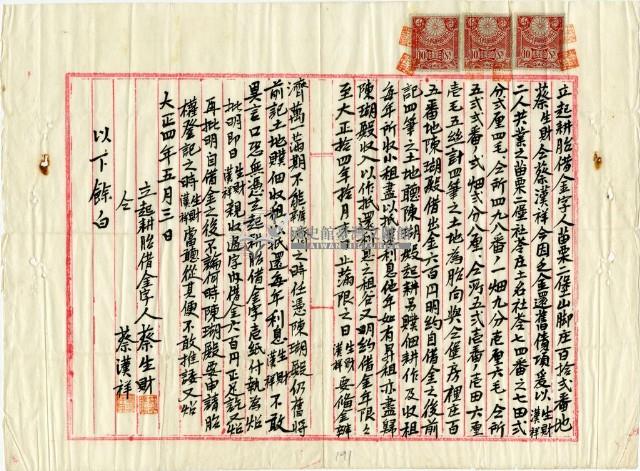 立起耕胎借金字人苗栗二堡山脚庄百拾弍番地
蔡生財仝蔡漢祥今因乏金還舊借項爰以生財漢祥
二人共業之苗栗二堡社苓庄土名社苓七四番之七田弍
分弍厘四毛仝所四九八番ノ一畑九分壱厘六毛仝所
五弍弍番ノ弍畑弍分八厘仝所五弍壱番ノ壱田六厘
壱毛五絲計四筆之土地為胎向與仝堡房裡庄百
五番地陳瑚殿借出金六百円明約自借金之後前
記四筆之土地聽陳瑚殿起耕另贌佃耕作及收租
每年所收小租盡抵利息他年如有昇租亦盡歸
陳瑚殿收入以作抵還利息之租谷又明約借金年限
至大正拾四年拾月止滿限之日生財漢祥要備金辦
濟萬一滿期不能辦之時任憑陳瑚殿仍舊將
前記土地贌佃收租抵還每年利息生財漢祥不敢
異言口恐無憑立起耕胎借金字壱紙付執為炤
批明即日生財漢祥親收過字内借金六百円正足訖又炤
再批明自借金之後不論何時陳瑚殿要申請胎
權登記之時生財漢祥應聽從其便不敢推諉又炤
大正四年五月三日
立起耕胎借金字人蔡生財
仝 蔡漢祥
以下餘白
191